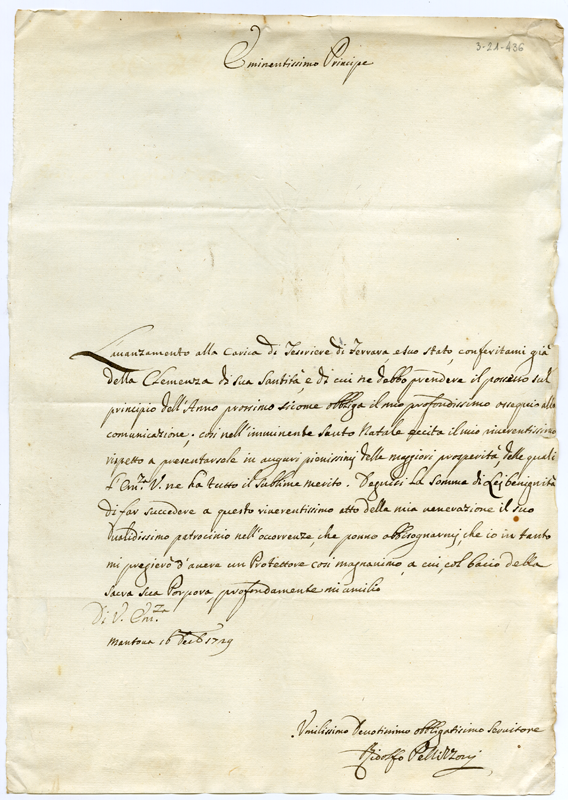 3-21-436
Eminentissimo Principe
L'avanzamento alla Carica di Tesoriere di Ferrara, e suo stato, conferitami già
della Clemenza di sua Santità, e di cui ne debbo prendere il possesso sul
principio dell'Anno prossimo sicome obbliga il mio profondissimo ossequio alla
comunicazione; così nell'imminente Santo Natale eccita il mio riverentissimo
rispetto a presentarsele in augurj pienissimi delle maggiori prosperità, delle quali
l'Em.za V. ne ha tutto il sublime merito. Degnisi la somma di Lei benignità
di far succedere a questo riverentissimo atto della mia venerazione il suo
validissimo patrocinio nell'occorrenze, che ponno abbisognarmj, che io in tanto
mi pregierò d'avere un Protettore così magnanimo, a cui, col bacio della
Sacra sua Porpora, profondamente mi umilio
Di V. Em.za
Mantova 16 Decb 1729
Umilissimo Devotissimo obbligatissimo Servitore
Ridolfo Pellizzonj